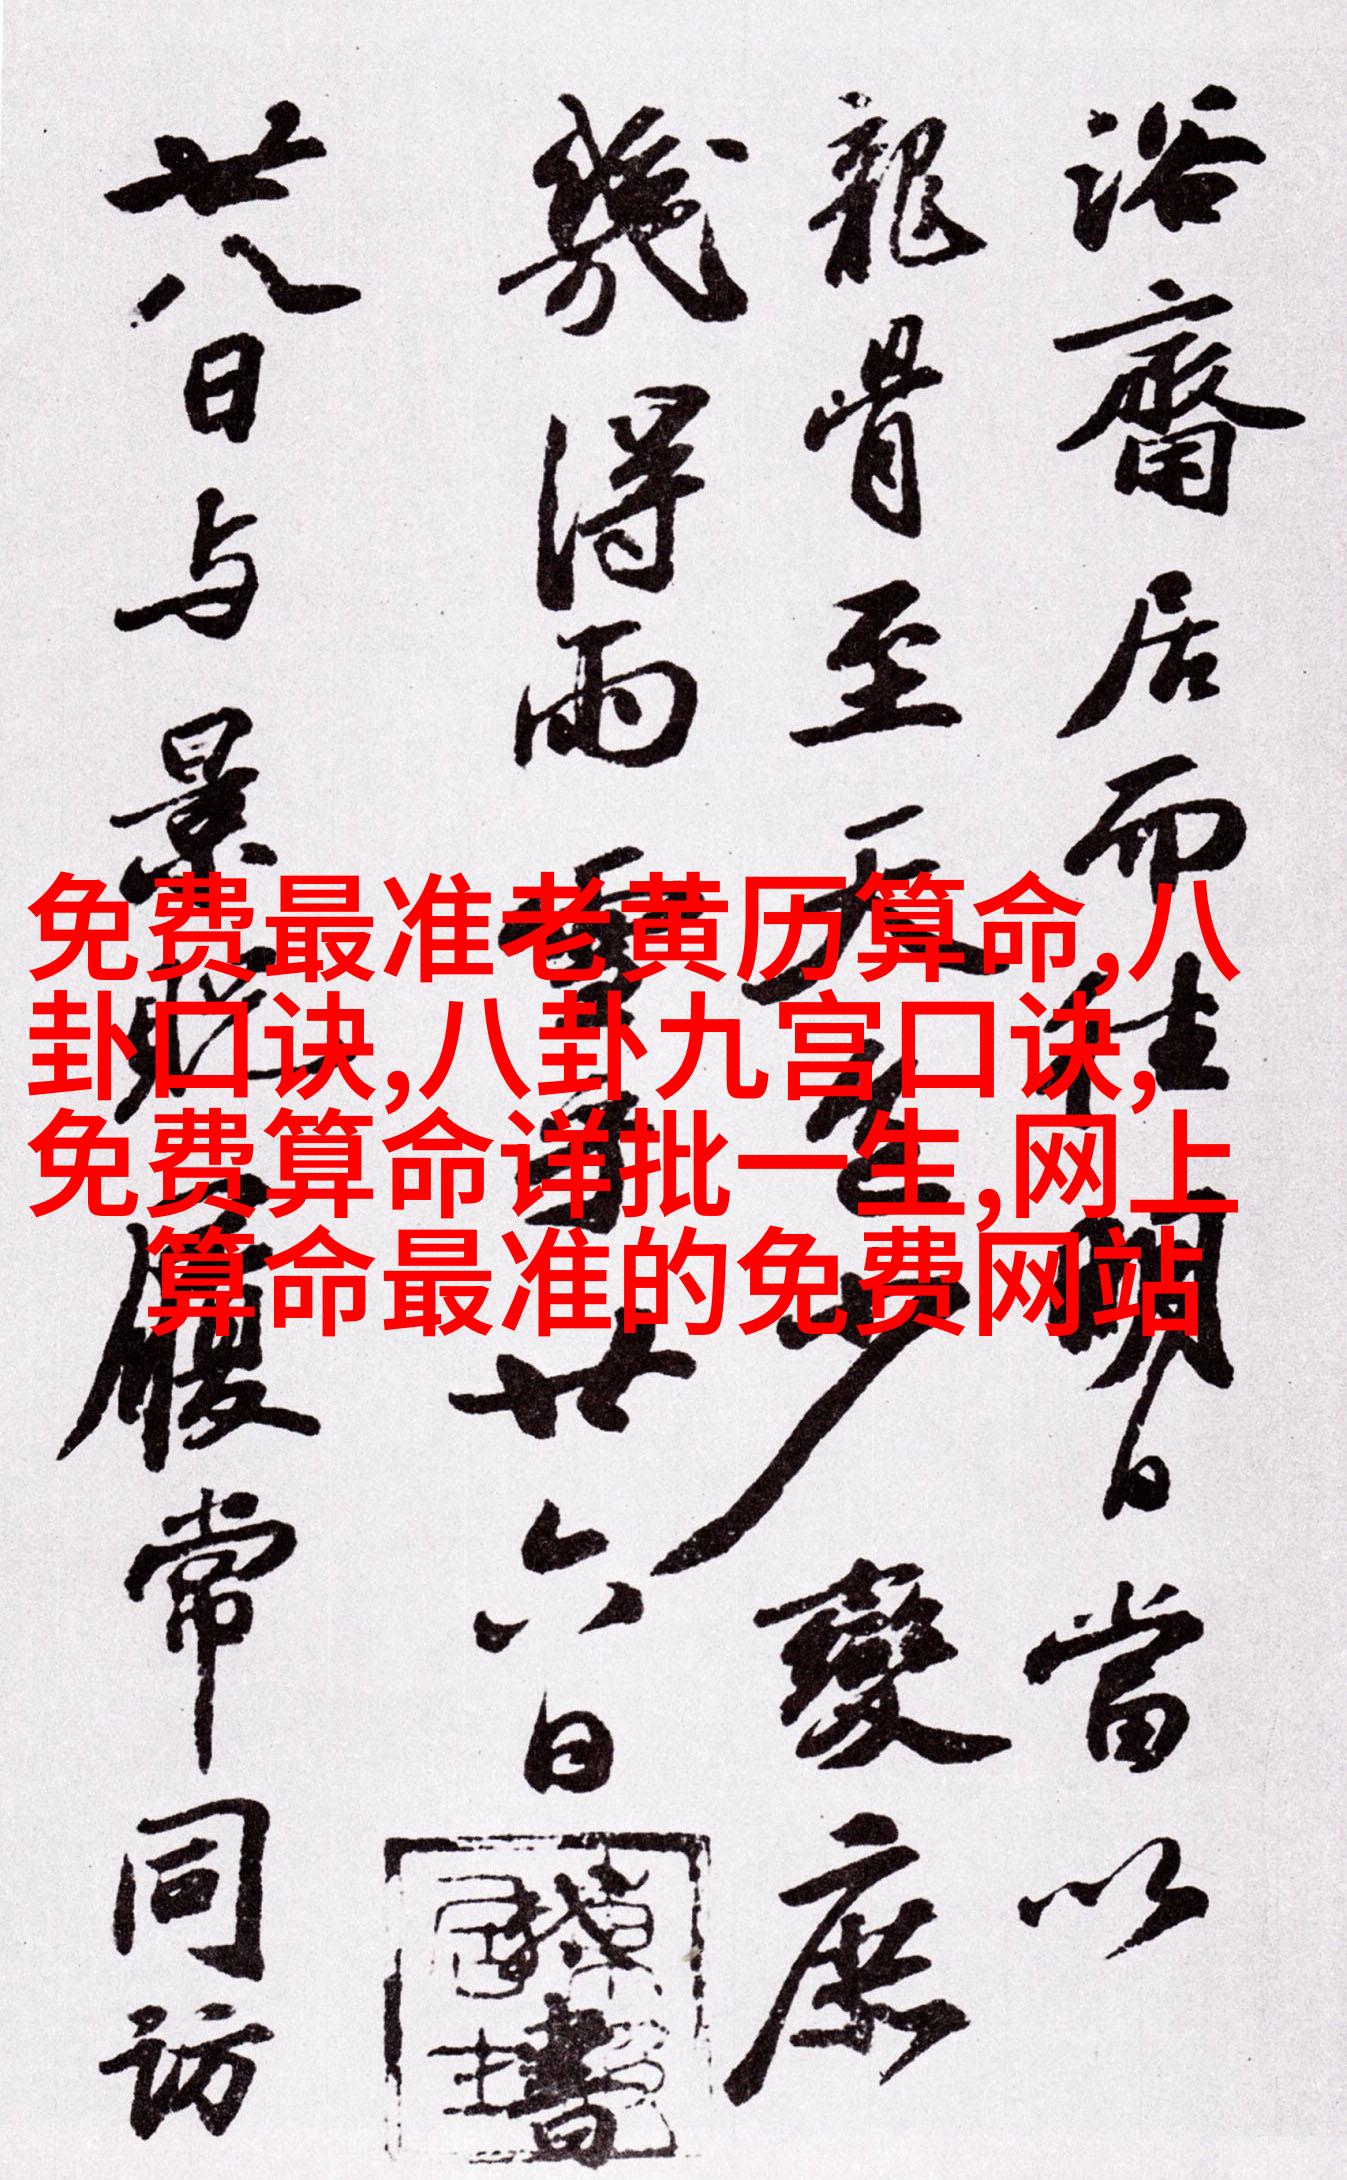 浴斋居而往明日當以
龍骨至天暮少變庶
幾得雨 重九 廿六日
書
廿八日与景貺履常同访
免费最准老黄历算命,八
卦口诀,八卦九宫口诀,
免费算命详批一生,网上
算命最准的免费网站